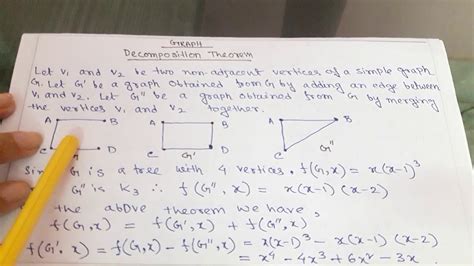 GRAPH
Decomposition Theorem
Let V₁ and V₂ be two non-adjacent vertices of a simple graph
G. Let G' be a graph obtained from G by adding an edge between
V₁ and V₂. Let G'' be a graph obtained from G by merging
the vertices V₁ and V₂ together.
A B A B A B
C D C D C
G' G''
G is a tree with 4 vertices, f(G,x) = x(x-1)³
G'' is K₃ ∴ f(G'', x) = x(x-1)(x-2)
the above theorem we have,
f(G,x) = f(G',x) + f(G'',x)
f(G',x) = f(G,x) - f(G'',x) = x(x-1)³ - x(x-1)(x-2)
= x⁴ - 4x³ + 6x² - 3x.